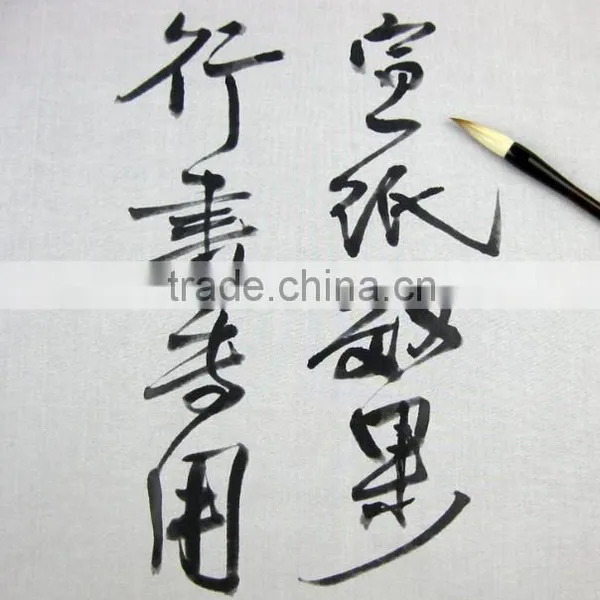 宣纸效果
行書专用
trade.china.cn